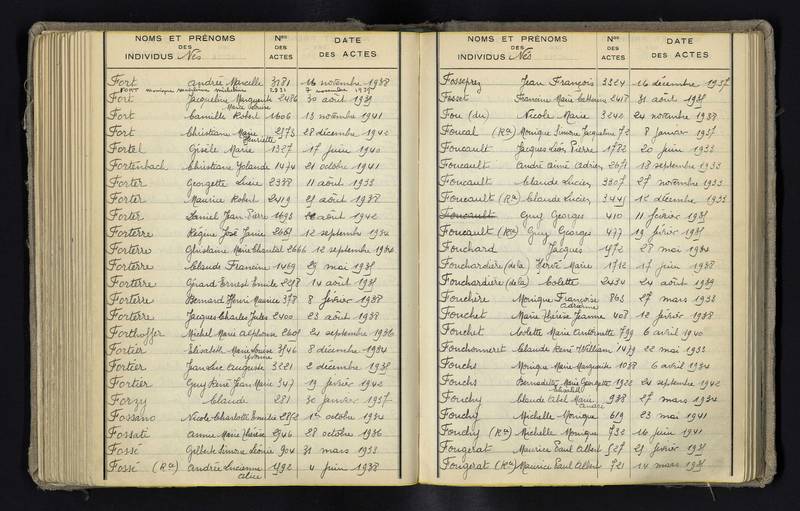 NOMS ET PRÉNOMS
DES
INDIVIDUS Nés
Nos
DES
ACTES
DATE
DES ACTES
Fort Andrée Marcelle 3181 16 novembre 1938
FORT monique 2931 7 novembre
Fort Jacqueline Marguerite 2486 30 août
Marie Louise
Fort Camille Robert 1606 13 novembre 1941
Fort Christiane Marie 2575 28 décembre 1942
Henriette
Fortel Gisèle Marie 1327 17 juin 1940
Fortenbach Christiane Yolande 1474 21 octobre 1941
Forter Georgette Lucie 2388 11 août 1933
Forter Maurice Robert 2419 21 août 1938
Forter Daniel Jean Pierre 1693 août 1942
Forterre Régine José Janie 2669 12 septembre 1934
Forterre Ghislaine Marie Chantal 2666 12 septembre 1934
Forterre Claude Francine 1469 29 mai
Forterre Gérard Ernest Emile 2258 14 août
Forterre Bernard Henri Maurice 378 8 février 1938
Forterre Jacques Charles Jules 2400 23 août 1938
Forthoffer Michel Marie Alphonse 21 septembre 1936
Fortier Elisabeth Marie Louise 3546 8 décembre 1934
Yvonne
Fortier Jean Luc Auguste 3221 2 décembre
Fortier Guy René Jean Marie 347 19 février 1942
Forzy Claude 281 30 janvier 1937
Fossano Nicole Charlotte Emilie 2852 1er octobre 1934
Fossati Anne Marie Thérèse 2946 28 octobre 1936
Fossé Gilberte Simone Léonie 904 31 mars 1933
Fossé (Ron) Andrée Lucienne 1592 4 juin 1938
Alice
NOMS ET PRÉNOMS
DES
INDIVIDUS Nés
Nos
DES
ACTES
DATE
DES ACTES
Fosseprez Jean François 3324 16 décembre 1937
Fosset Francine Marie Catherine 2418 31 août
Fou (du) Nicole Marie 3240 24 novembre 1938
Foucal (Ron) Monique Simone Jacqueline 72 8 janvier 1937
Foucault Jacques Léon Pierre 1782 20 juin 1933
Foucault André Aimé Adrien 2671 18 septembre 1933
Foucault Claude Lucien 3307 27 novembre 1933
Foucault (Ron) Claude Lucien 3441 12 décembre 1933
Foucault Guy Georges 410 11 février
Foucault (Ron) Guy Georges 477 19 février
Fouchard Jacques 1472 28 mai 1934
Fouchardière (de la) Hervé Marie 1712 17 juin 1938
Fouchardière (de la) Colette 2434 24 août 1939
Fouchère Monique Françoise 863 27 mars 1933
Adrienne
Fouchet Marie Thérèse Jeanne 408 12 février 1938
Fouchet Colette Marie Antoinette 799 6 avril 1940
Fouchonneret Claude René William 1479 22 mai 1933
Fouchs Monique Marie Marguerite 1038 6 avril 1934
Fouchs Bernadette Marie Georgette 1922 24 septembre 1942
Fouchy Claude Abel Marie 938 27 mars 1934
André
Fouchy Michelle Monique 619 23 mai 1941
Fouchy (Ron) Michelle Monique 732 16 juin 1941
Fougerat Maurice Paul Albert 527 21 février
Fougerat (Ron) Maurice Paul Albert 721 14 mars